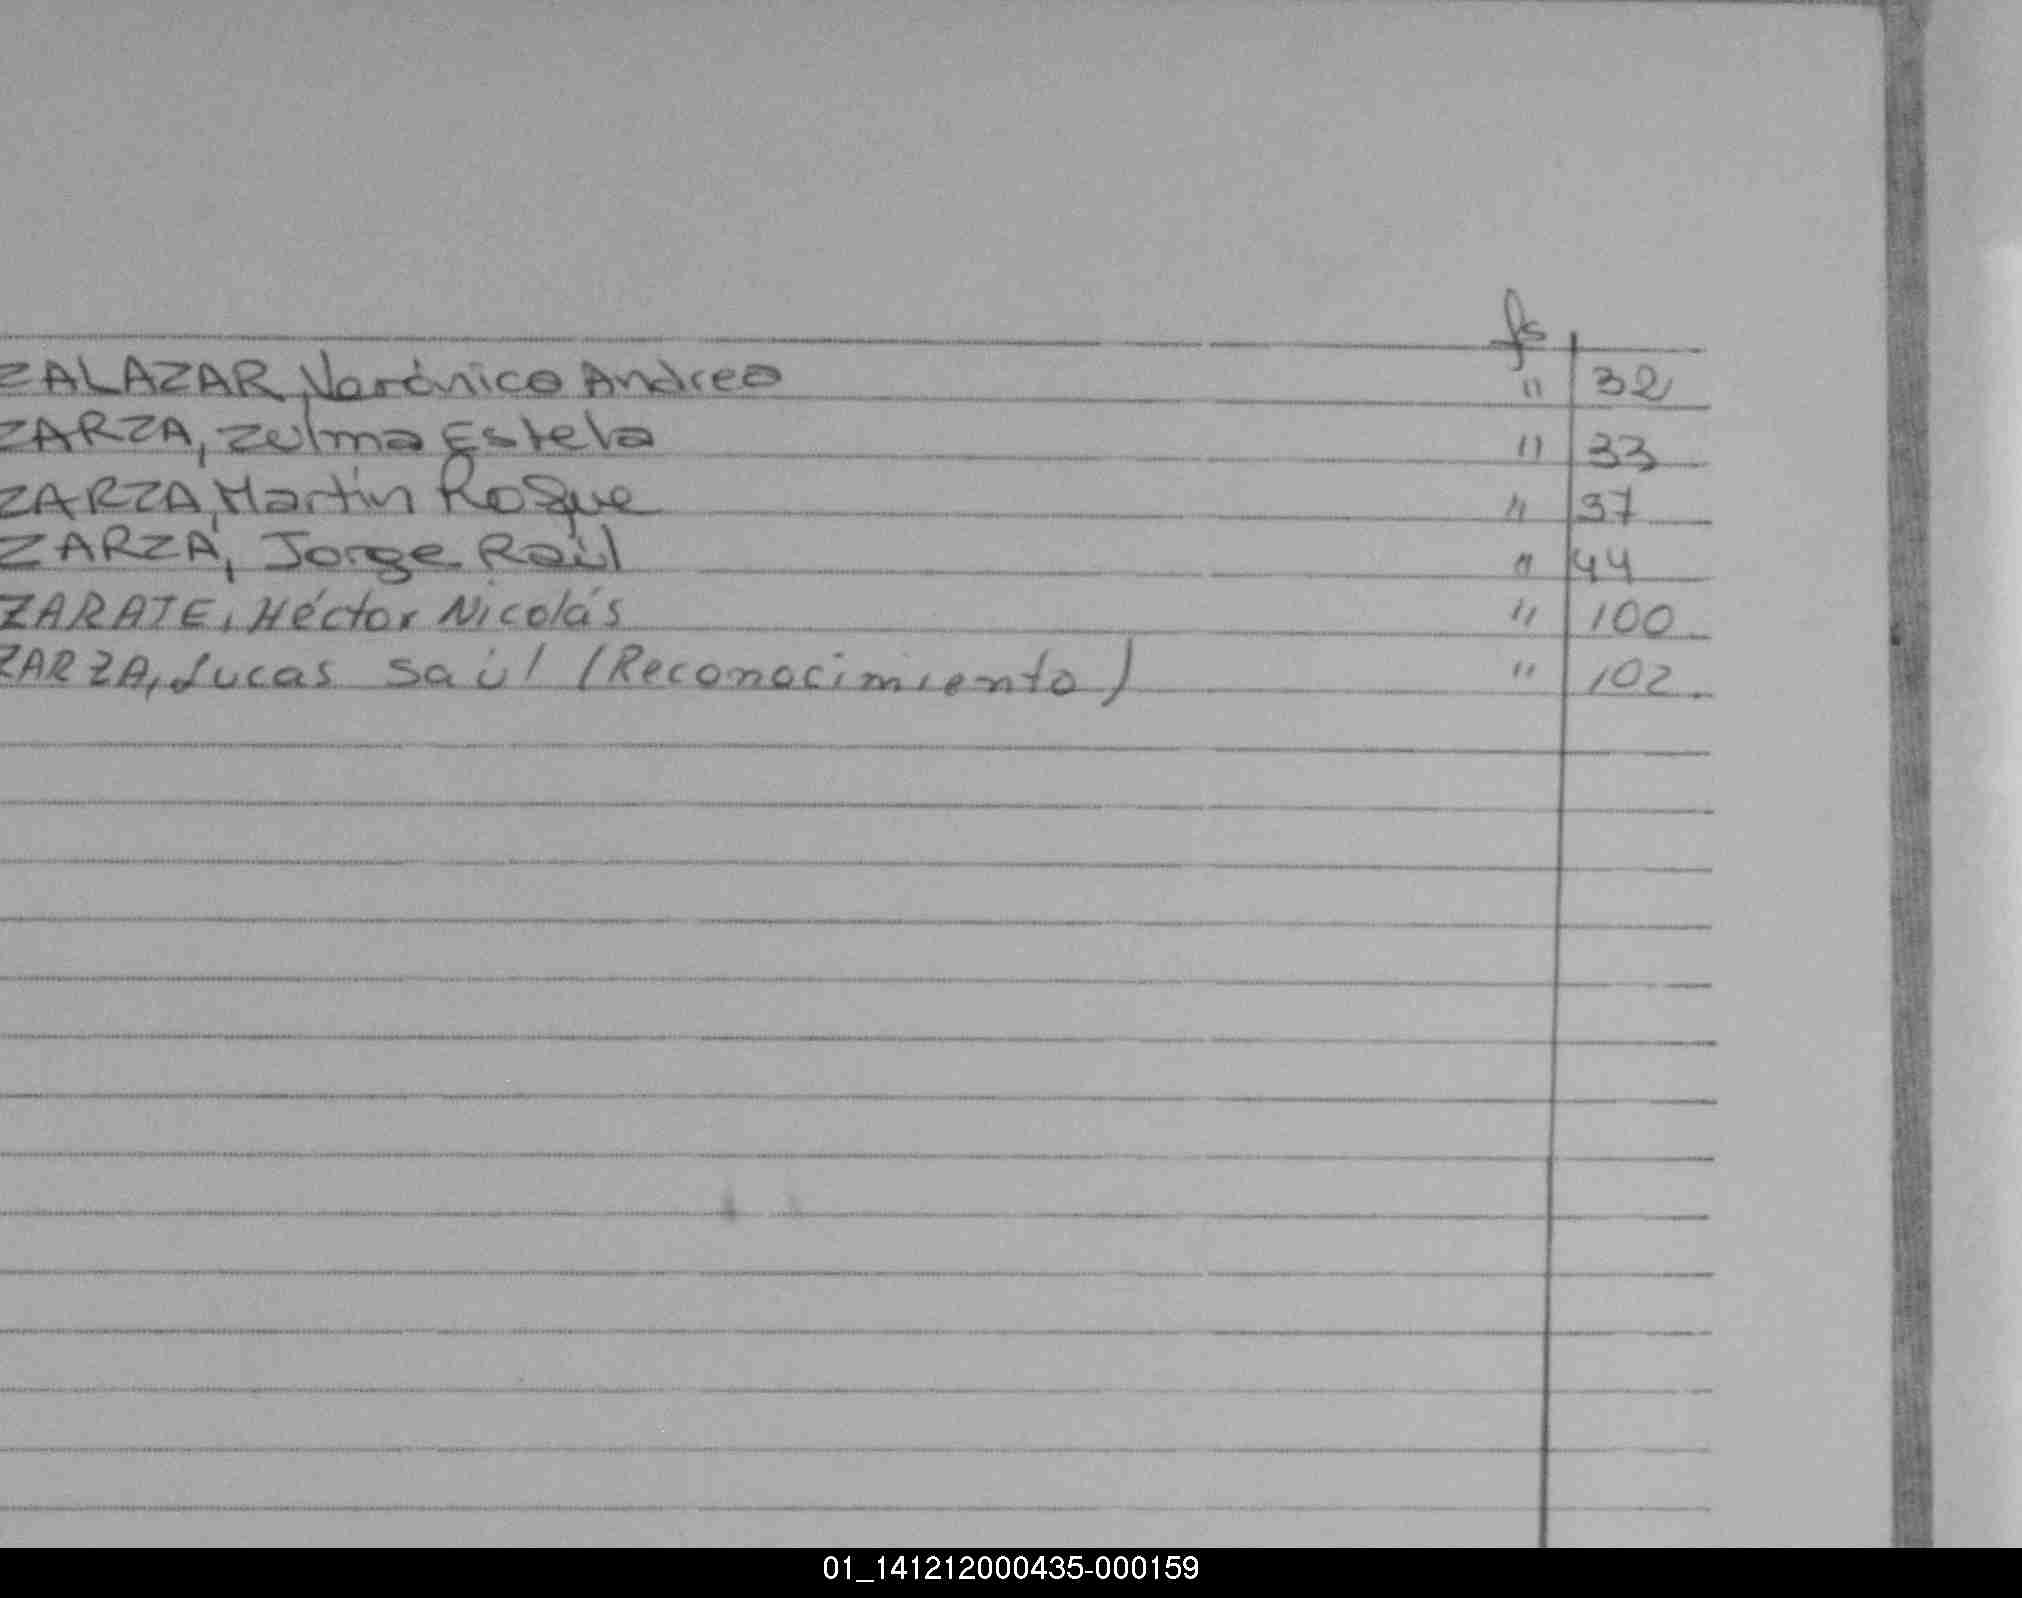 fs
ZALAZAR, Verónica Andrea " 32
ZARZA, Zulma Estela " 33
ZARZA, Martin Roque " 37
ZARZA, Jorge Raúl " 44
ZARATE, Héctor Nicolás " 100
ZARZA, Lucas Saúl (Reconocimiento) " 102
01_141212000435-000159